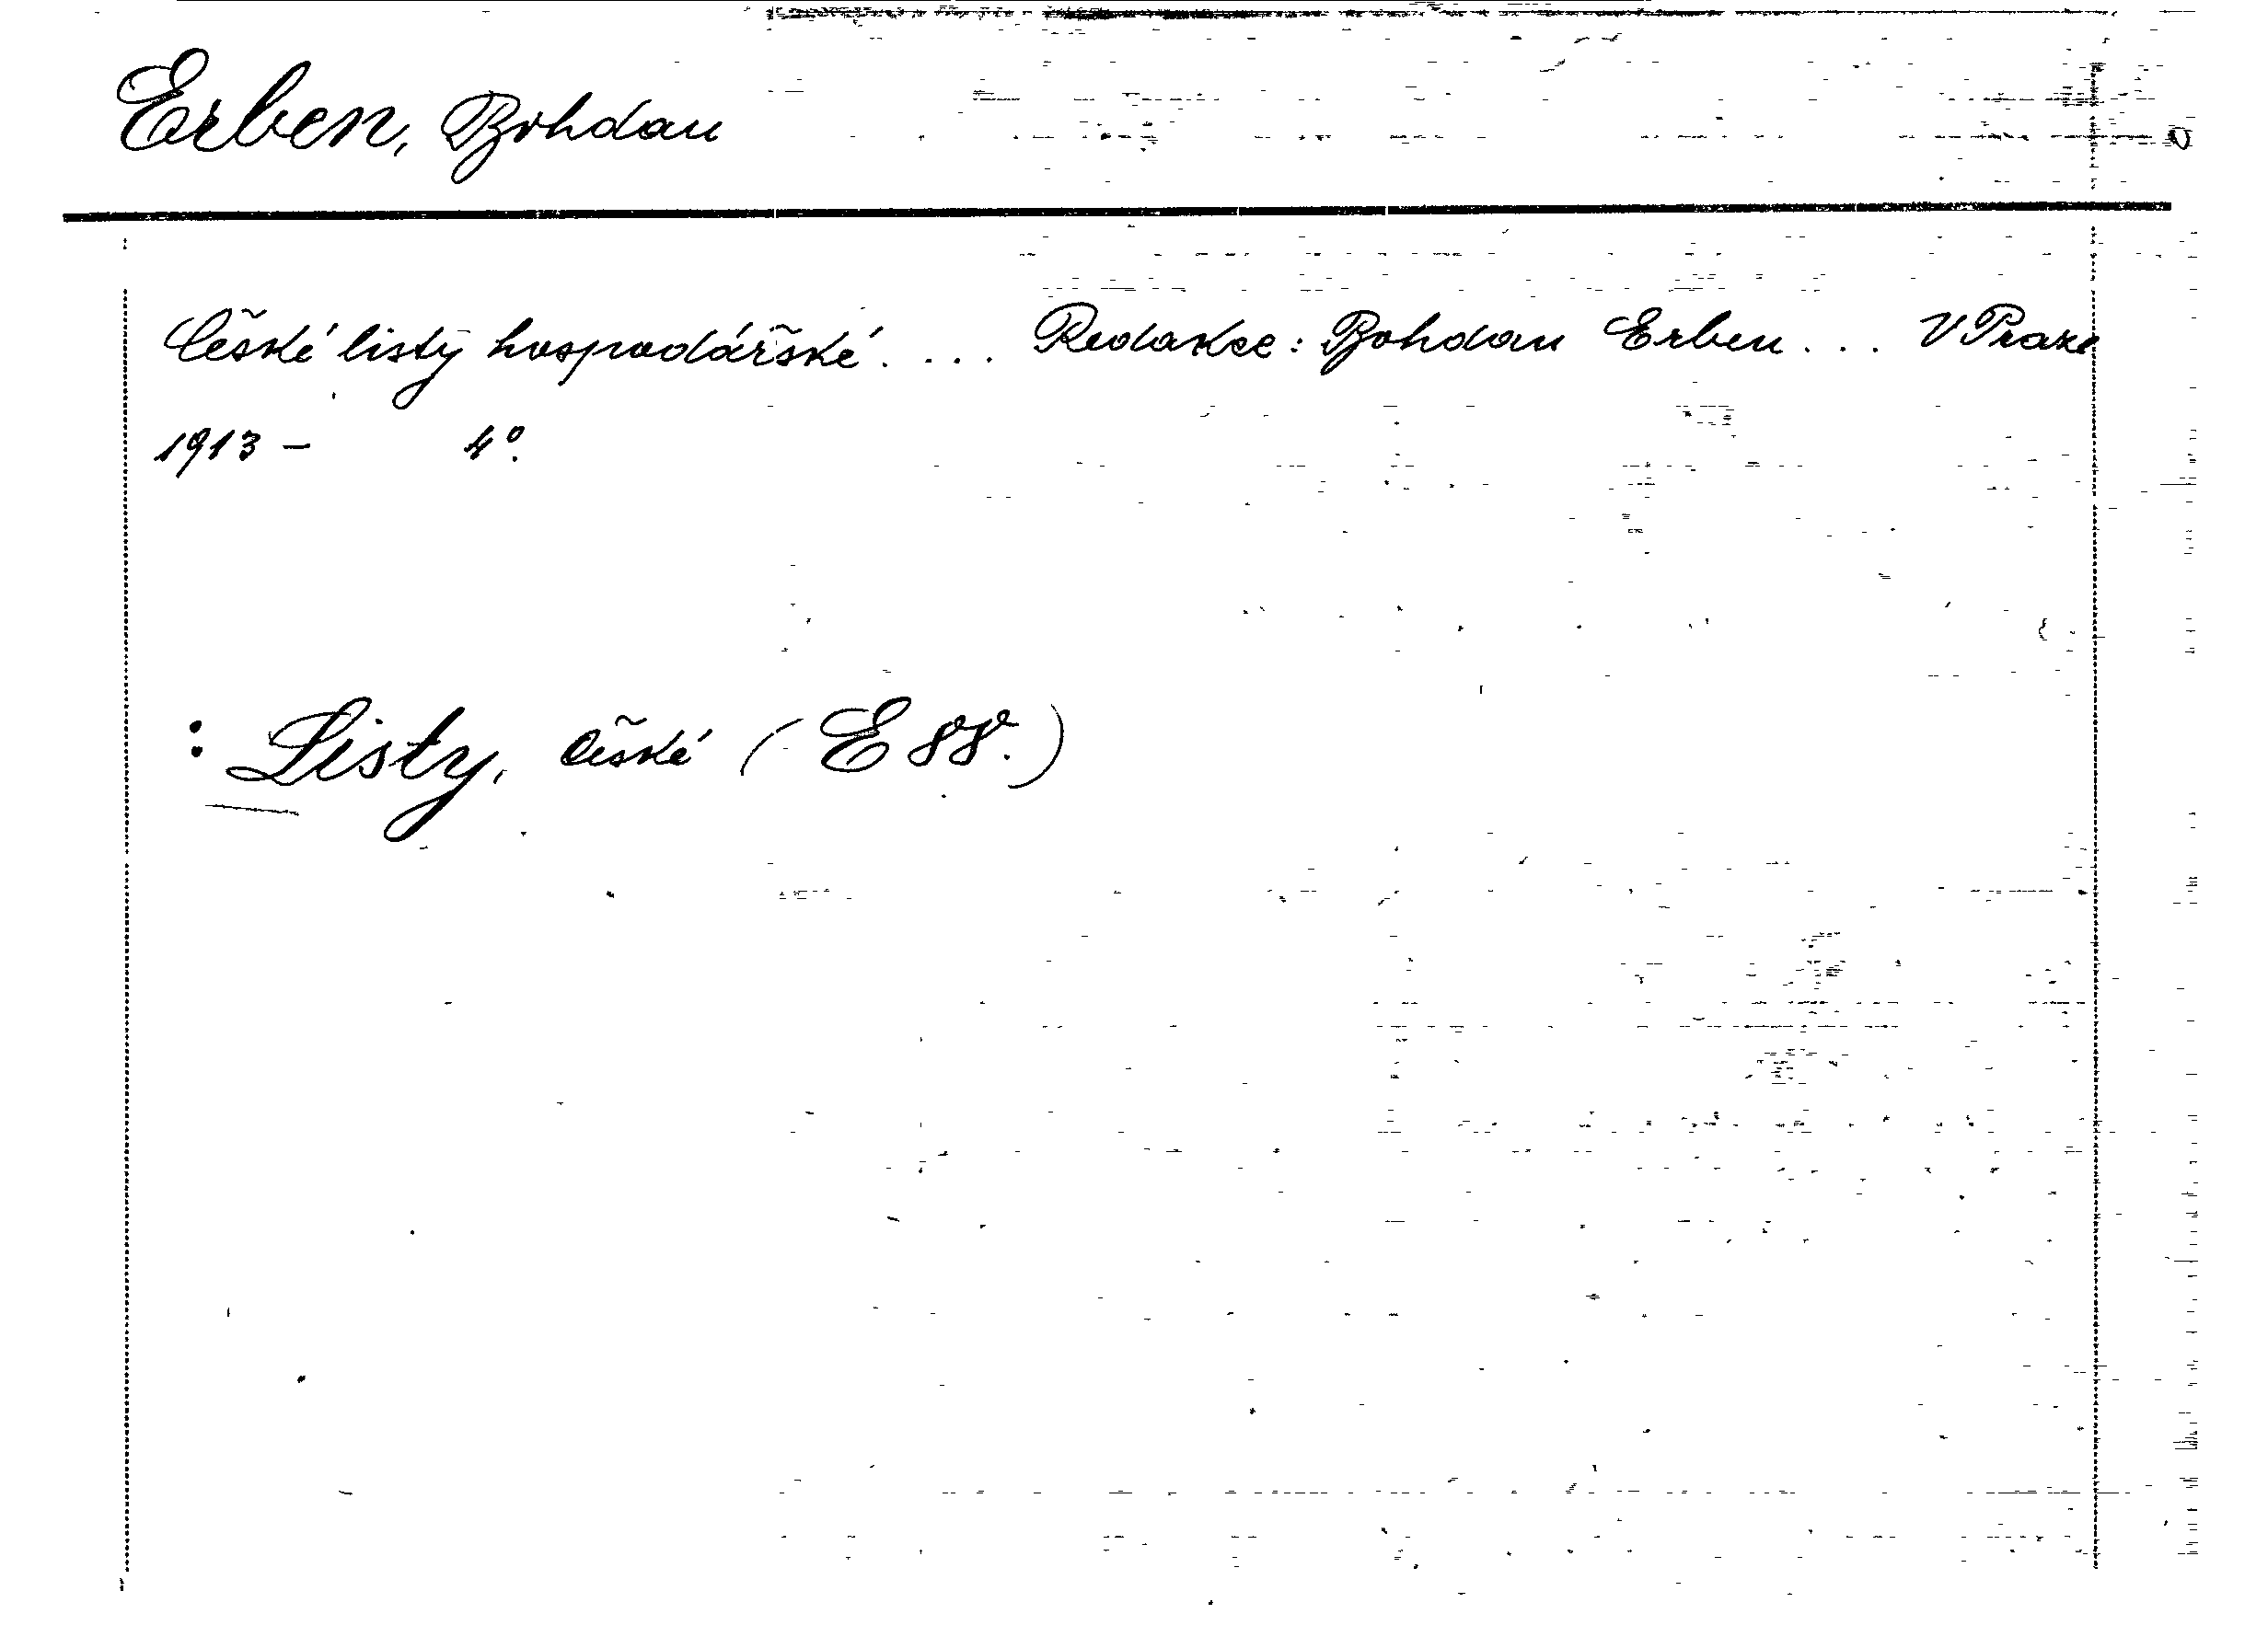 Erben, Bohdan
České listy hospodářské. ... Redakce: Bohdan Erben ... V Praze
1913 – 4°.
: Listy, české (E 88.)